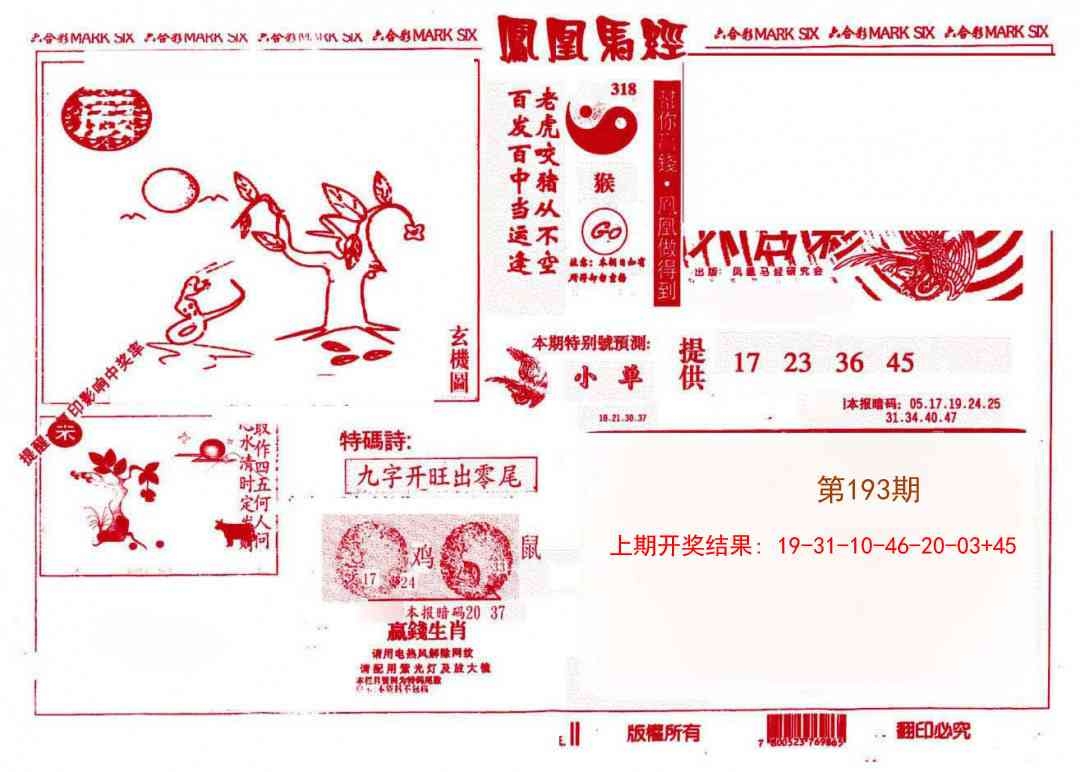 六合彩MARK SIX 六合彩MARK SIX 六合彩MARK SIX 六合彩MARK SIX
鳳凰馬經
六合彩MARK SIX 六合彩MARK SIX 六合彩MARK SIX
318
老虎咬猪从不空
百发百中当运逢
猴
Go
所得却勿宣扬
你 錢·鳳凰做得到
出版：凤凰马经研究会
玄機圖
本期特别號預测:
小 单
18.21.30.37
提供
17 23 36 45
本报暗码: 05.17.19.24.25
31.34.40.47
提醒 印影响中奖率
取作四五何人问
水清时定发
特碼詩:
九字开旺出零尾
17 24 鸡 33 鼠
本报暗码20 37
赢錢生肖
请用电热风解除网纹
请配用紫光灯及放大镜
第193期
上期开奖结果: 19-31-10-46-20-03+45
版權所有
7 800523 769865
翻印必究